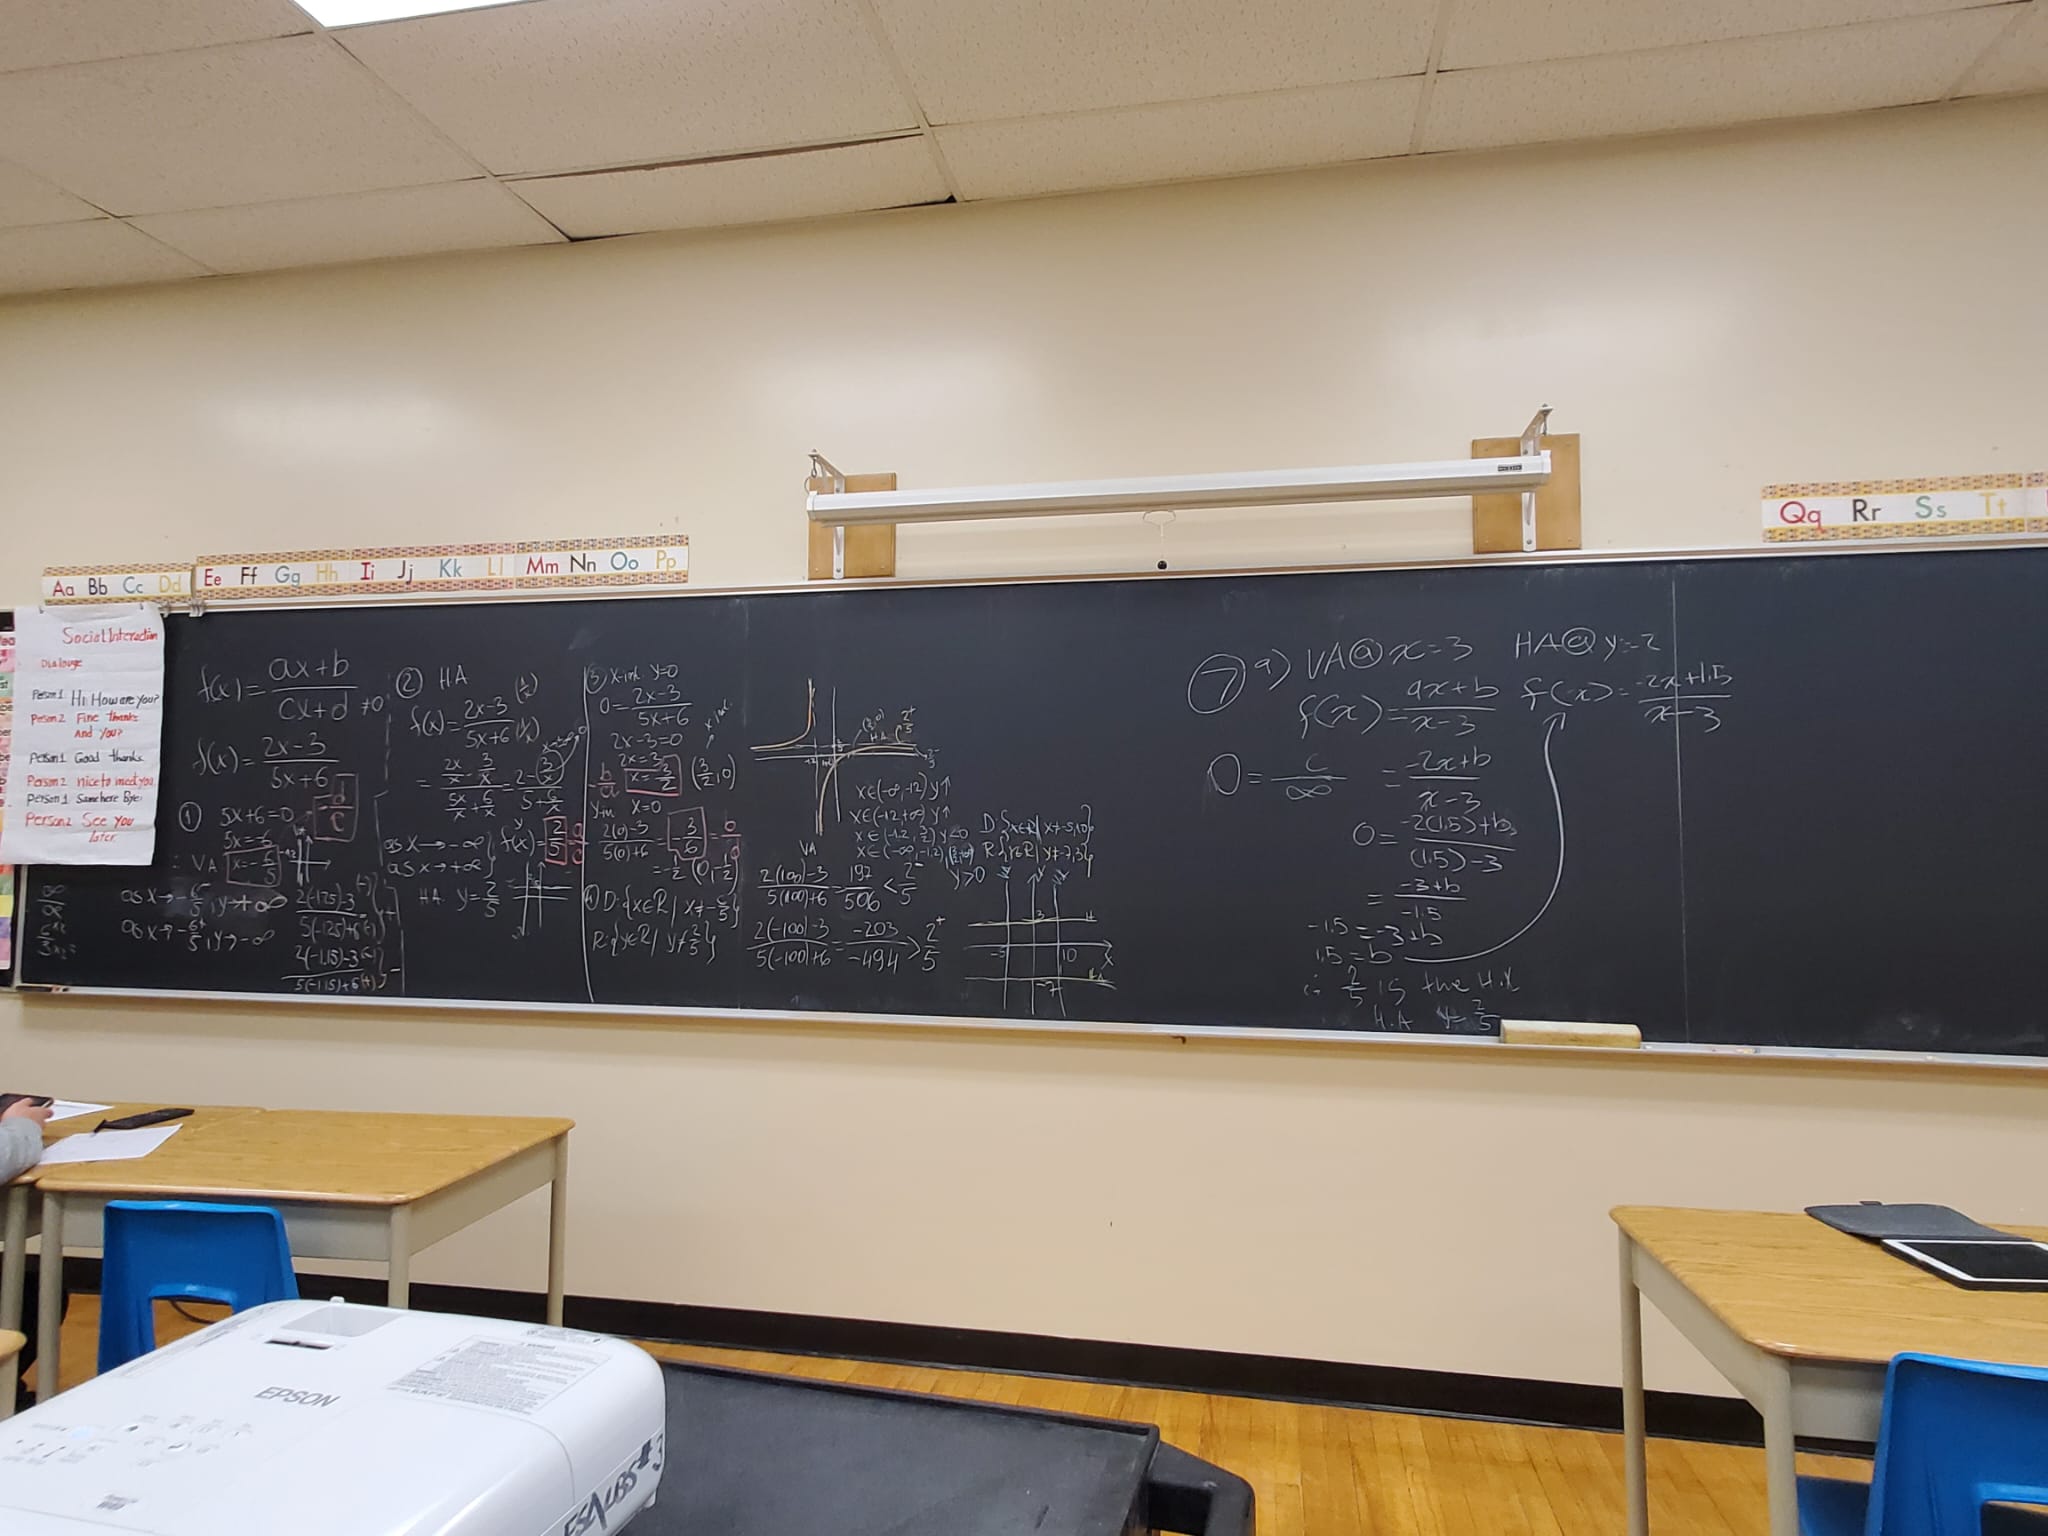 Aa Bb Cc Dd Ee Ff Gg Hh Ii Jj Kk Ll Mm Nn Oo Pp
Qq Rr Ss Tt
Social Interaction
Dialouge
Person 1 Hi How are you?
Person 2 Fine thanks
And you?
Person 1 Good thanks
Person 2 nice to meet you
Person 1 Same here Bye!
Person 2 See you
later.
f(x) = ax+b / cx+d ≠0
f(x) = 2x-3 / 5x+6
① 5x+6=0 -d/c
5x=-6
∴ VA x=-6/5
as x→-6/5⁻, y→+∞
as x→-6/5⁺, y→-∞
2(-1.25)-3 / 5(-1.25)+6
2(-1.15)-3 / 5(-1.15)+6
② HA
f(x) = 2x-3 / 5x+6
= 2x/x - 3/x / 5x/x + 6/x = 2-3/x / 5+6/x
as x→-∞
as x→+∞
f(x) = 2/5 a/c
HA y=2/5
③ x-int y=0
0 = 2x-3 / 5x+6
2x-3=0
2x=3
-b/a x=3/2 (3/2, 0)
y-int x=0
2(0)-3 / 5(0)+6 = -3/6 = b/d
= -1/2 (0, -1/2)
④ D: {x∈R | x≠-6/5}
R: {y∈R | y≠2/5}
HA
VA
x∈(-∞,-1.2) y↑
x∈(-1.2,+∞) y↑
x∈(-1.2, 3/2) y<0
x∈(-∞,-1.2),(3/2,+∞)
y>0
2(100)-3 / 5(100)+6 = 197/506 < 2/5⁻
2(-100)-3 / 5(-100)+6 = -203/-494 > 2/5⁺
D: {x∈R | x≠-5,10}
R: {y∈R | y≠-7,3}
3
-5 10 x
-7
⑦ a) VA@x=3 HA@y=-2
f(x) = ax+b / x-3 f(x) = -2x+1.5 / x-3
0 = c/∞ = -2x+b / x-3
0 = -2(1.5)+b / (1.5)-3
= -3+b / -1.5
-1.5 = -3+b
1.5 = b
∴ 2/5 is the H.A
H.A y=2/5
EPSON